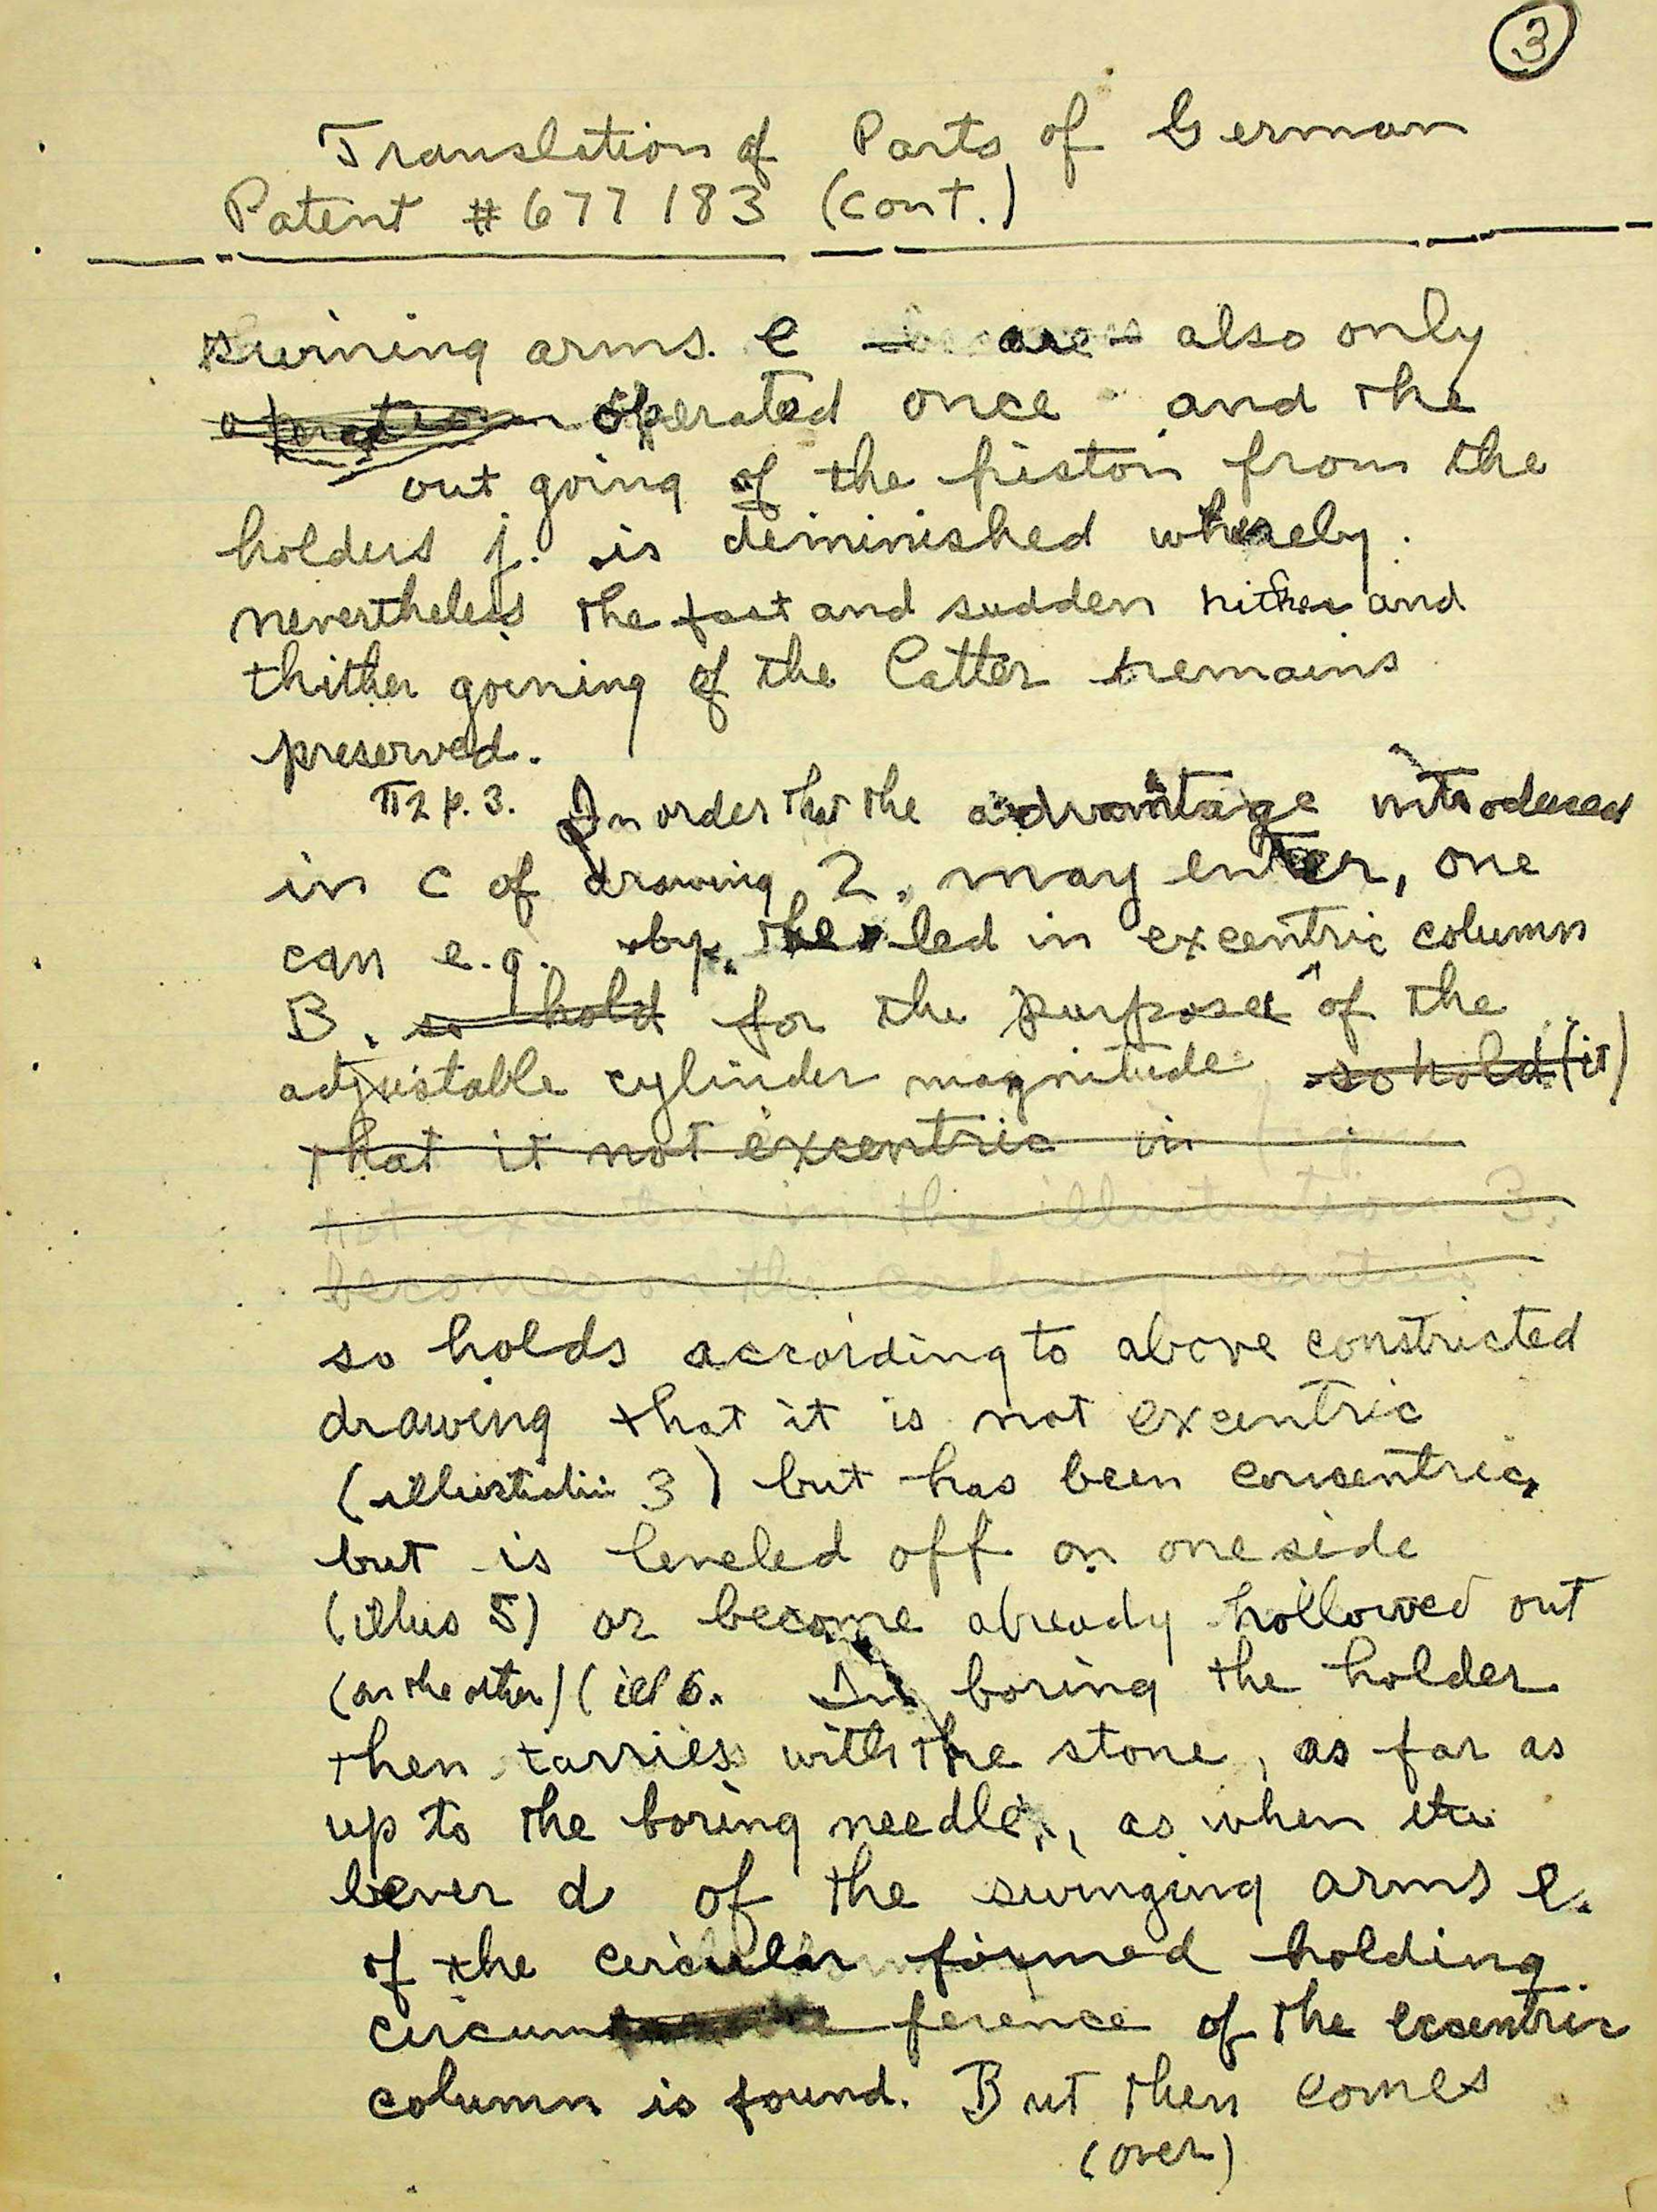 3
Translation of Parts of German
Patent # 677 183 (cont.)
arms. e are also only
operated once and the
out going of the piston from the
holders j. is deminished whereby
nevertheless the fast and sudden hither and
thither goening of the latter remains
preserved.
¶2 p. 3. In order that the advantage introduced
in c of drawing 2, may enter, one
can e.g. by the led in excentric column
B. so hold for the purpose of the
adjustable cylinder magnitude so hold (it)
that it not excentric in
not excentric in the illustration 3.
become on the
so holds according to above constricted
drawing that it is not excentric
(illustration 3) but has been concentric,
but is leveled off on one side
(illus 5) or become already hollowed out
(on the other) (ill 6. In boring the holder
then tarries with the stone, as far as
up to the boring needle, as when
lever d of the swinging arms e.
of the circular formed holding
circum ference of the excentric
column is found. But then comes
(over)